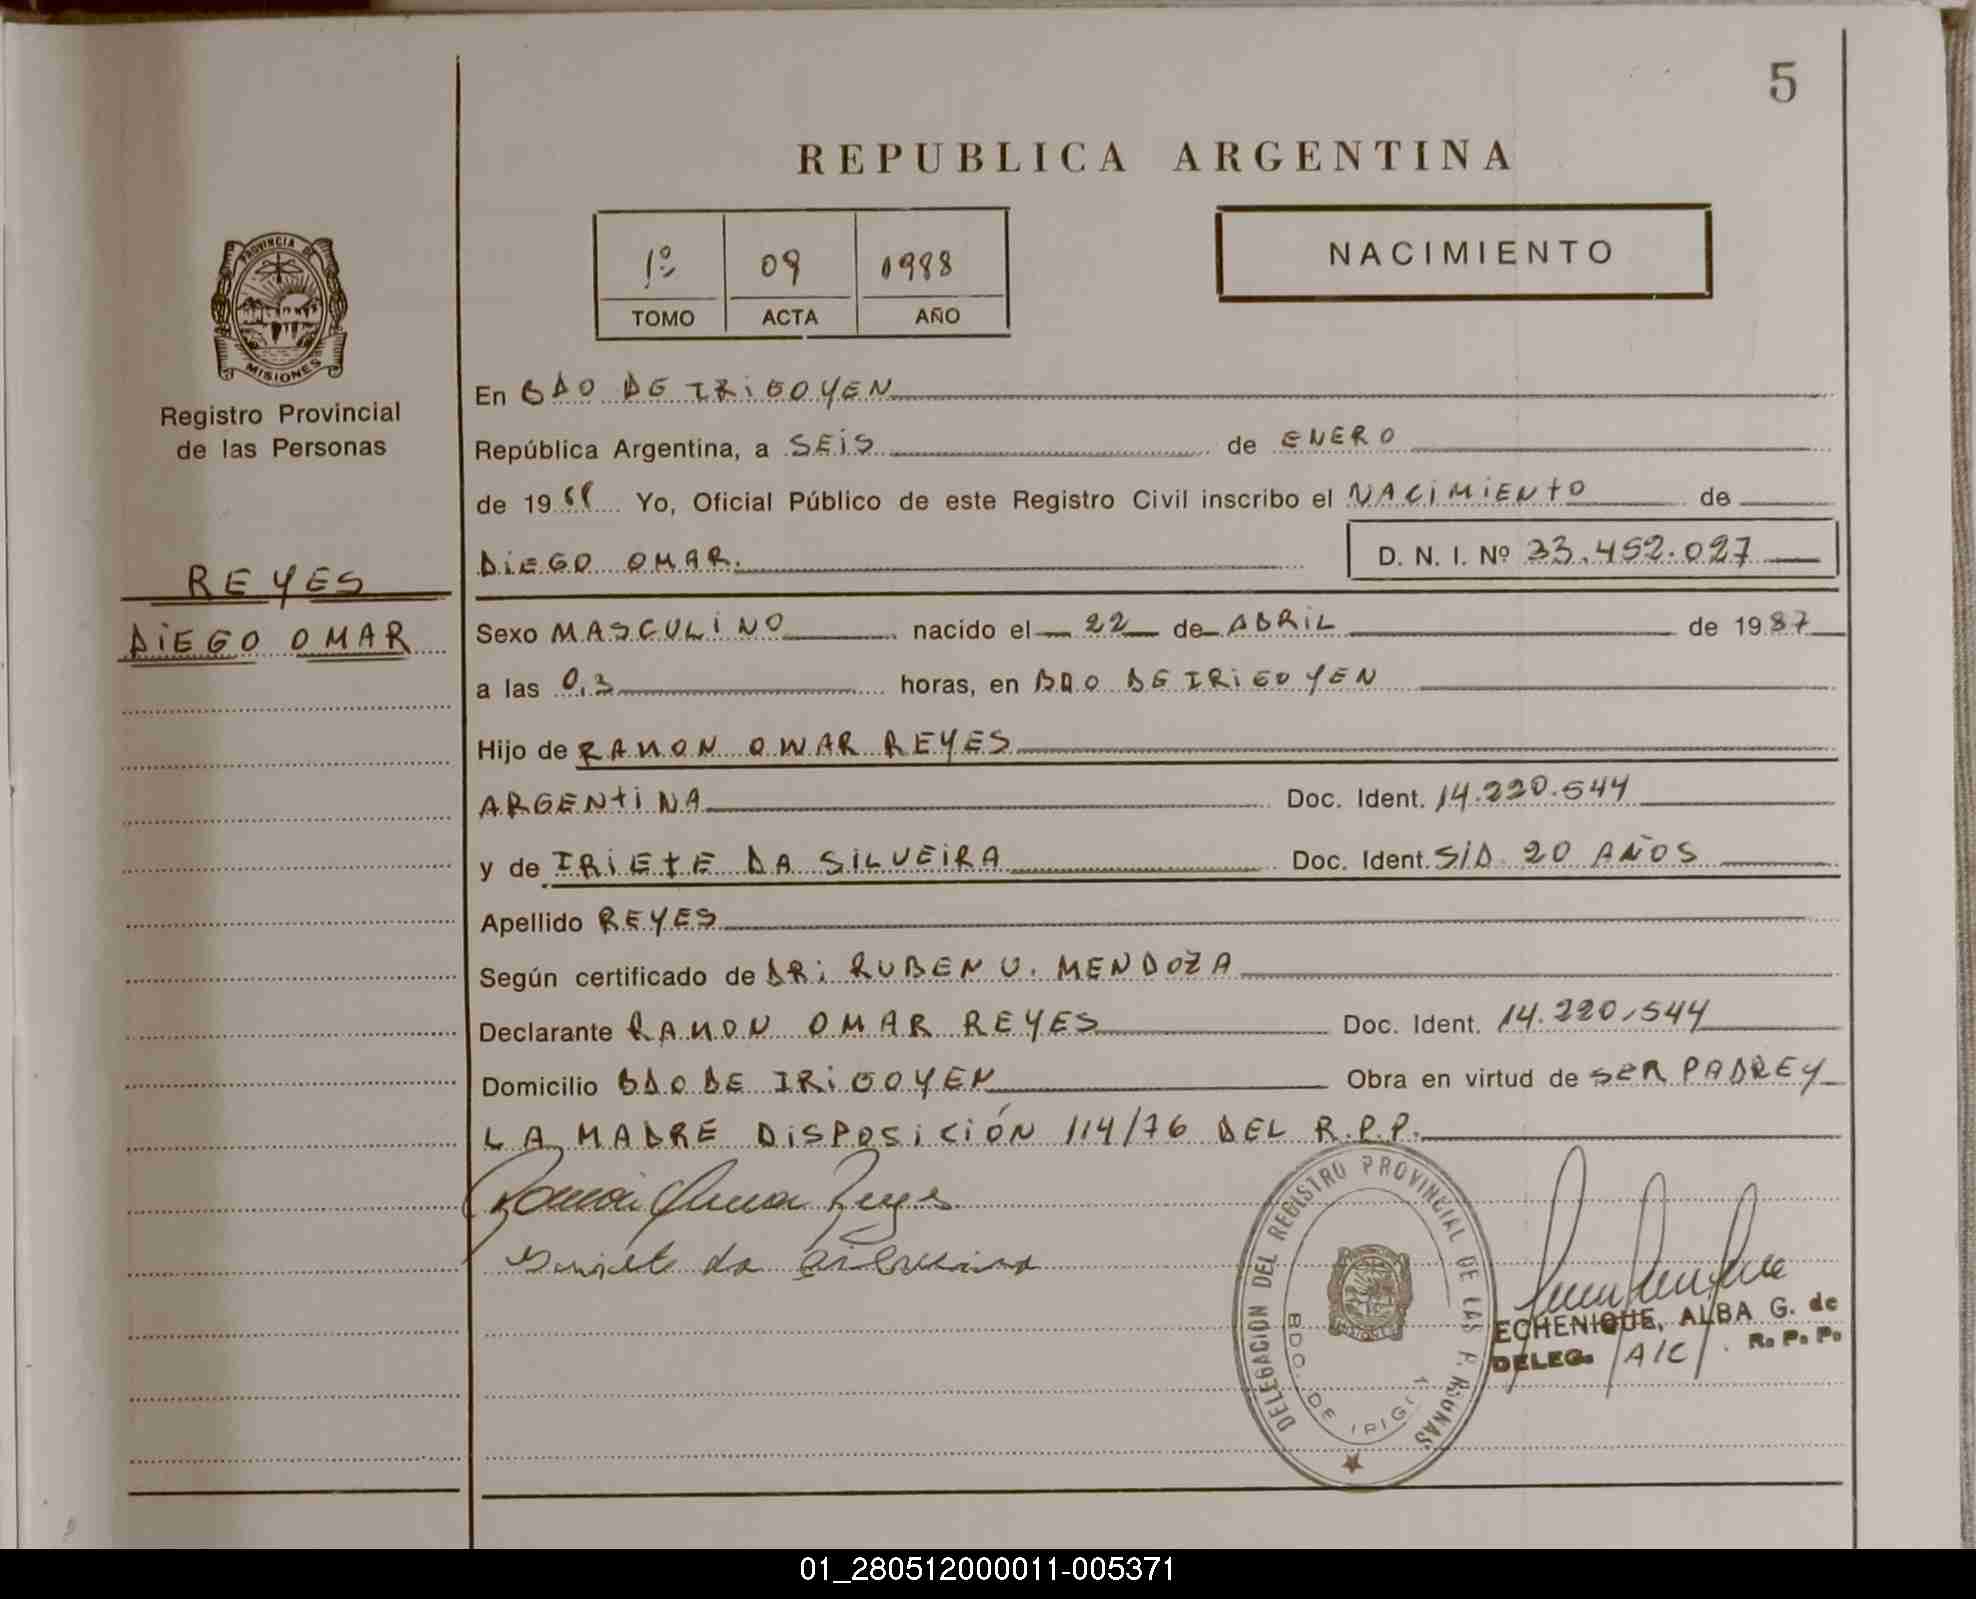 5
REPUBLICA ARGENTINA
1º 09 1988
TOMO ACTA AÑO
NACIMIENTO
PROVINCIA DE
MISIONES
Registro Provincial
de las Personas
REYES
DIEGO OMAR
En BDO DE IRIGOYEN
República Argentina, a SEIS de ENERO
de 1988 Yo, Oficial Público de este Registro Civil inscribo el NACIMIENTO de
DIEGO OMAR. D. N. I. Nº 33.452.027
Sexo MASCULINO nacido el 22 de ABRIL de 1987
a las 0,3 horas, en BDO DE IRIGOYEN
Hijo de RAMON OMAR REYES
ARGENTINA Doc. Ident. 14.220.544
y de IRIETE DA SILVEIRA Doc. Ident. S/D. 20 AÑOS
Apellido REYES
Según certificado de DR: RUBEN U. MENDOZA
Declarante RAMON OMAR REYES Doc. Ident. 14.220.544
Domicilio BDO DE IRIGOYEN Obra en virtud de SER PADRE Y
LA MADRE DISPOSICIÓN 114/76 DEL R.P.P.
Ramón Omar Reyes
da silveira
DELEGACION DEL REGISTRO PROVINCIAL DE LAS P.RSONAS
BDO. DE IRIGOY
MISIONES
ECHENIQUE, ALBA G. de
DELEG. A/C R. P. P.
01_280512000011-005371